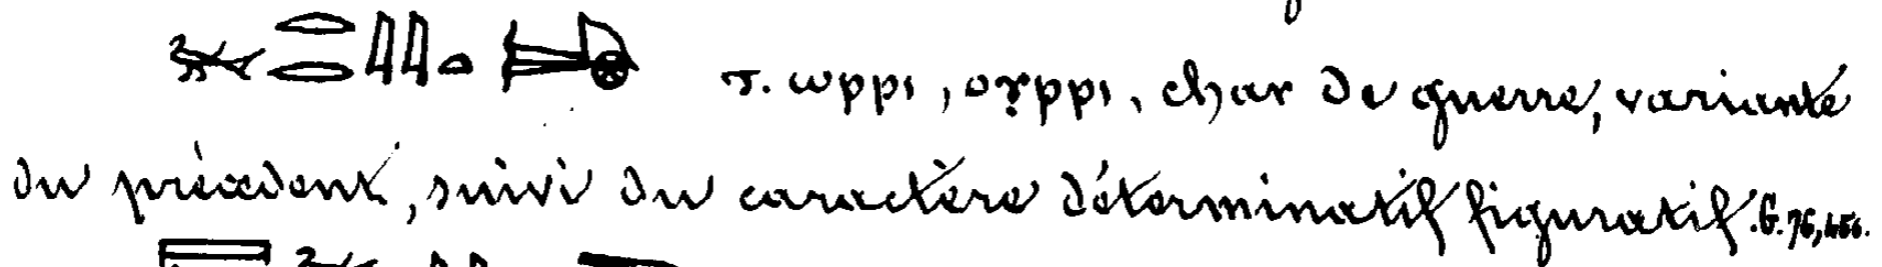 т. ωρρι, ογρρι, char de guerre, variante
du précédent, suivi du caractère déterminatif figuratif. G. 76, 456.